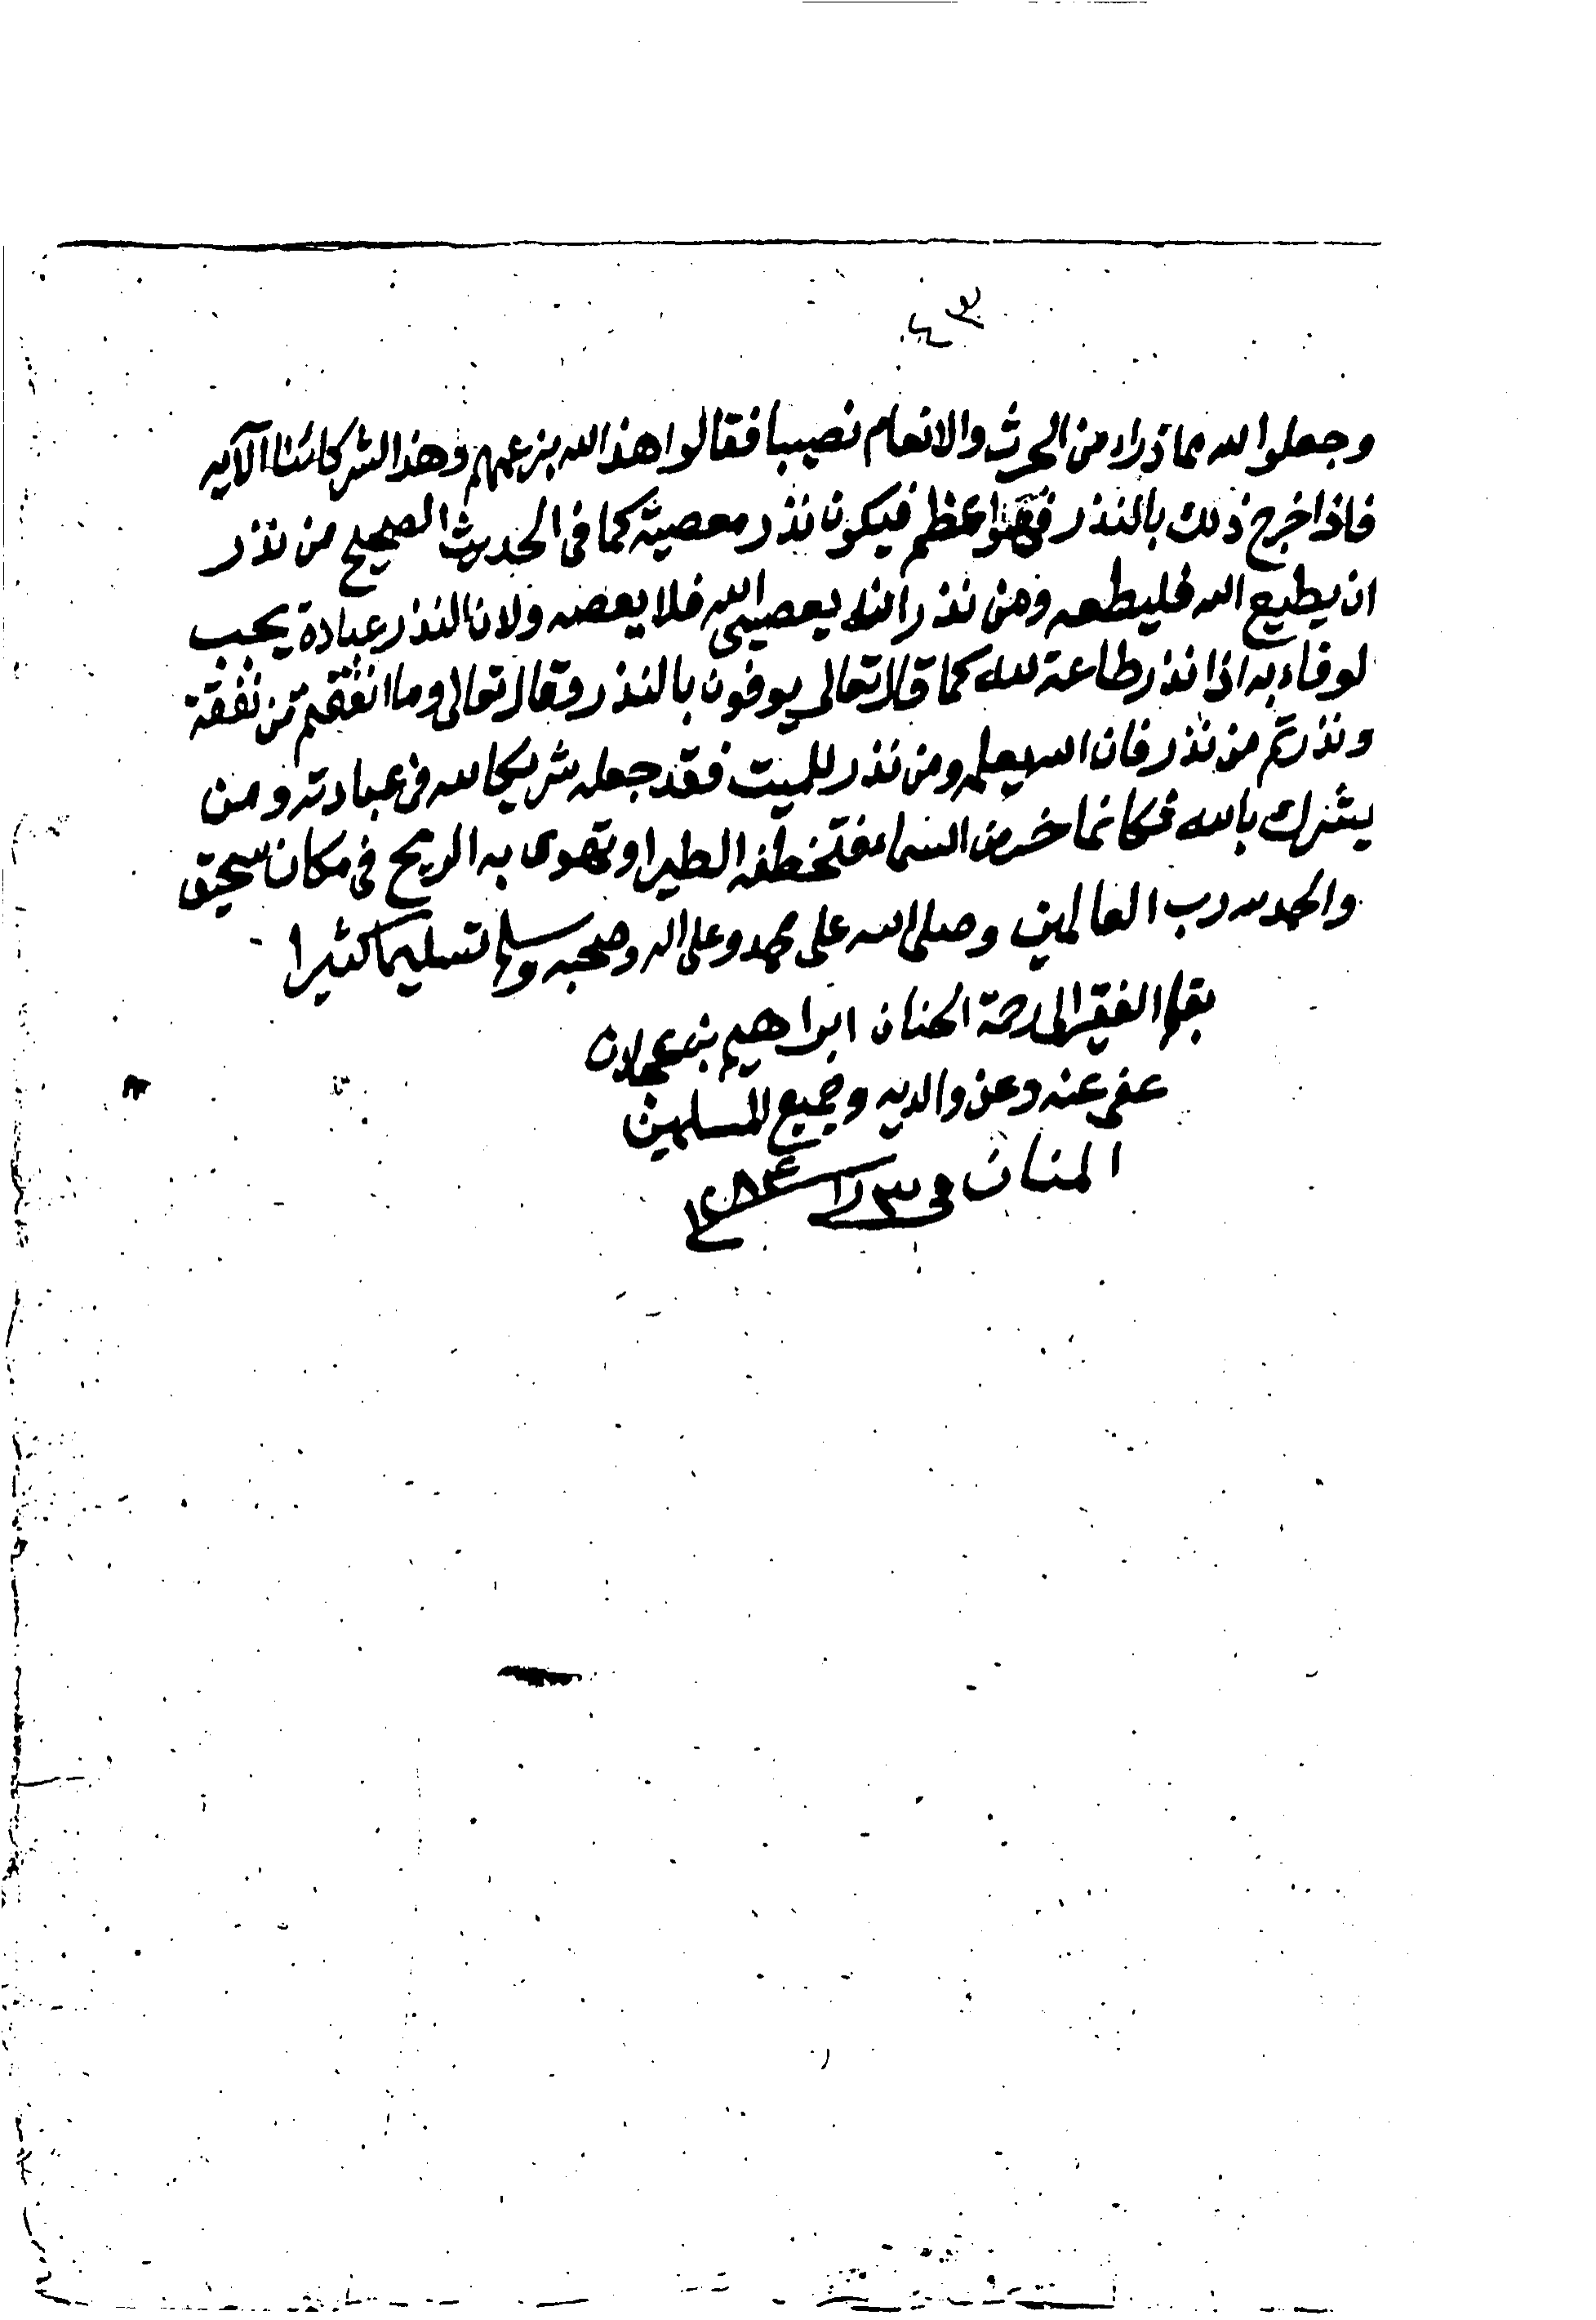 وجعلوا لله مما ذراء من الحرث والانعام نصيبا فقالوا هذا لله بزعمهم وهذا لشركائنا الآيه
فاذا اخرج ذلك بالنذر فهو اعظم فيكون نذر معصية كما في الحديث الصحيح من نذر
ان يطيع الله فليطعه ومن نذر ان يعصي الله فلا يعصه ولان النذر عبادة يجب
لوفاء به اذا نذر طاعة لله كما قال تعالى يوفون بالنذر وقال تعالى وما انفقتم من نفقة
ونذرتم من نذر فان الله يعلمه ومن نذر للميت فقد جعله شريكا لله في عبادته ومن
يشرك بالله فكانما خر من السماء فتخطفه الطير او تهوى به الريح في مكان سحيق
والحمد لله رب العالمين وصلى الله على محمد وعلى اله وصحبه وسلم تسليما كثيرا
بقلم الفقير الى رحمة الحنان ابراهيم بن عجلان
عفى عنه وعن والديه وجميع المسلمين
المنان في ٣ را ١٢٨٤